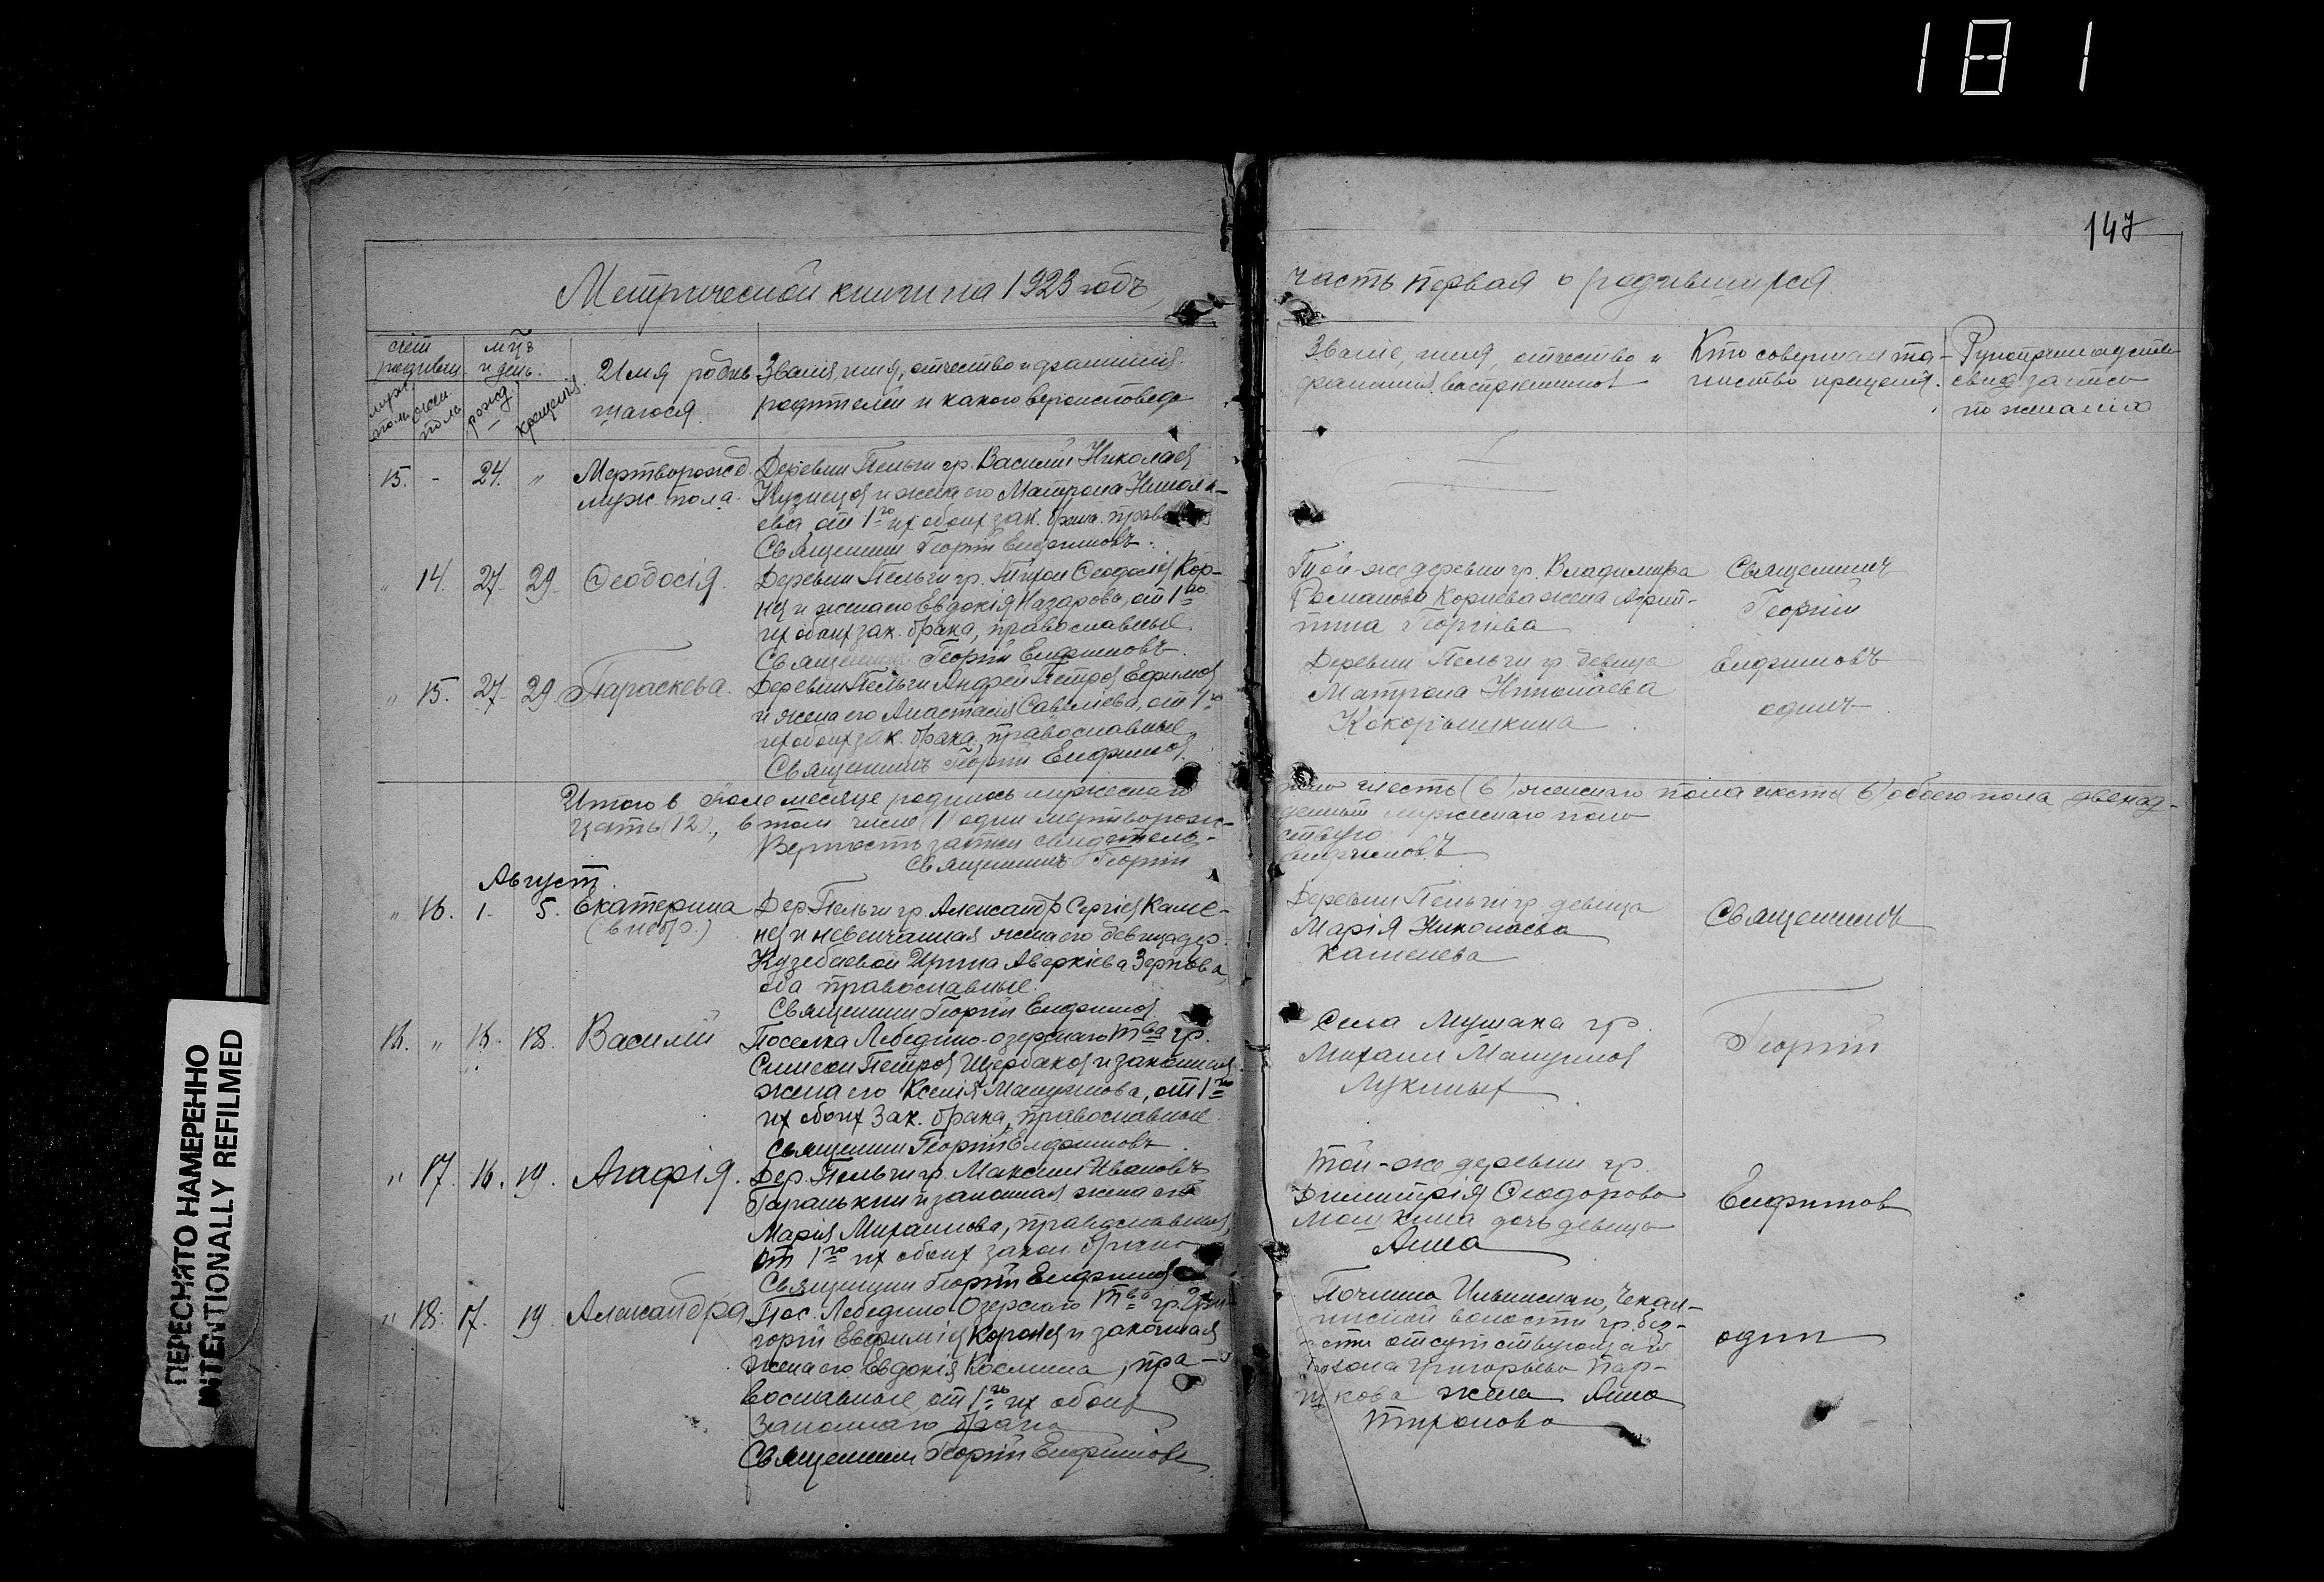 181
147
Метрической книги на 1923 годъ,
часть первая о родившихся.
счет родивш.
мужс. пола
жен. пола
мц̃ъ и день.
рожд.
крещенія.
Имя родив
шагося.
Званія, имя, отчество и фамилія
родителей и какого вероисповед.
Званіе, имя, отчество и
фамилія воспріемников
Кто совершал та-
инство крещенія.
Рукоприкладство
свид. записи
по желанію
15. - 24. "
Мертворожд.
муж. пола.
Деревни Пельги гр. Василій Николаев
Кузнецов и жена его Матрона Никола-
ева от 1го их обоих зак. брака. правосл
Священник Георгій Елифимовъ.
" 14. 27 29
Ѳеодосія.
Деревни Пельги гр. Тихон Ѳеодолов Кор-
нев и жена его Евдокія Назарова, от 1го
их обоих зак. брака, православные.
Священник Георгій
Той-же деревни гр. Владимира
Романова Корнева жена Агрип-
пина Георгіева
Священникъ
Георгій
" 15. 27 29
Параскева.
Деревни Пельги Андрей Петров Ефимов
и жена его Анастасія Савеліева, от 1го
их обоих зак. брака, православные
Священникъ Георгій
Деревни Пельги гр. девица
Матрона Николаева
Кокорышкина
одинъ
Итого в Іюле месяце родилось мужескаго
пола шесть (6) женскаго пола шесть (6) обоего пола двенад-
цать (12), в том числе (1) один мертворож-
денный мужескаго пола
Верность записи свидетель-
ствую
Священникъ Георгій
Август.
" 16. 1. 5.
Екатерина
Дер. Пельги гр. Александр Сергіев Каме-
нев и невенчанная жена его девица дер.
Кузебаевой Ирина Аверкіева Зернова
оба православные.
Священник Георгій
Деревни Пельги гр. девица
Марія Николаева
Каменева
Священникъ
16. " 16. 18.
Василій
Поселка Лебедино-озерскаго Тва гр.
Симеон Петров Щербаков и законная
жена его Ксенія от 1го
их обоих зак. брака, православные
священник Георгій
Села Мушака гр.
Михаил
Лукиных
Георгій
" 17. 16. 19.
Агафія.
Дер. Пельги гр. Максим Ивановъ
и законная жена его
Марія Михаилова, православныя,
от 1го их обоих закон. брака
Священник Георгій
Той-же деревни гр.
Димитрія Ѳеодорова
Мошкина дочь девица
Анна
" 18. 17. 19
Александра
Пос. Лебедино Озерскаго Тва гр. Гри-
горій Евфиміев и законная
жена его Евдокія Космина, пра-
вославные, от 1го их обоих
Законнаго брака
Священник Георгій
волости гр.
отсутствующаго
Григорьева Пар-
шкова жена Анна
один
ПЕРЕСНЯТО НАМЕРЕННО
INTENTIONALLY REFILMED